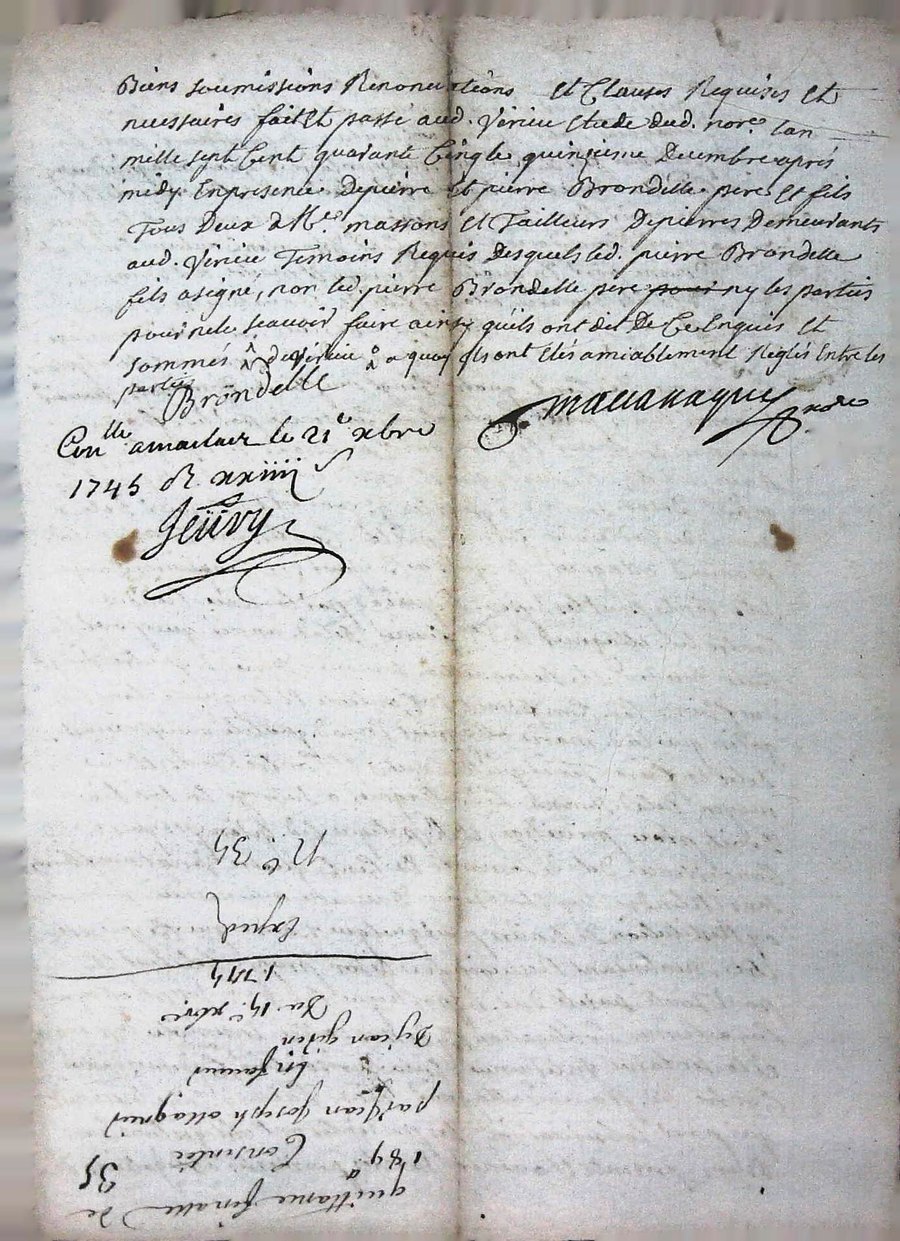 Biens soumissions Renonciations Et Clauses Requises Et
necessaires fait Et passé aud. Virieu Etude dud. nore. lan
mille sept Cent quarante Cinq le quinzieme decembre apres
midy En presence de pierre Et pierre Brondelle pere Et fils
Tous Deux Mes. massons Et Tailleurs De pierres Demeurants
aud. Virieu Temoins Requis Desquels led. pierre Brondelle
fils a signé, non led. pierre Brondelle pere pour ny les parties
pour ne le scavoir faire ainsy quils ont dit De Ce Enquis Et
sommés de Virieu a quoy ils ont Etés amiablement Reglés Entre les
parties
Brondelle
nore
Conlle a le 21e xbre
1745 R xxiiii s
Jeüvy
No 35
Exped
1745
Du 15e xbre
De jean
En faveur
par jean joseph
Consentie
184
35
quittance finale de